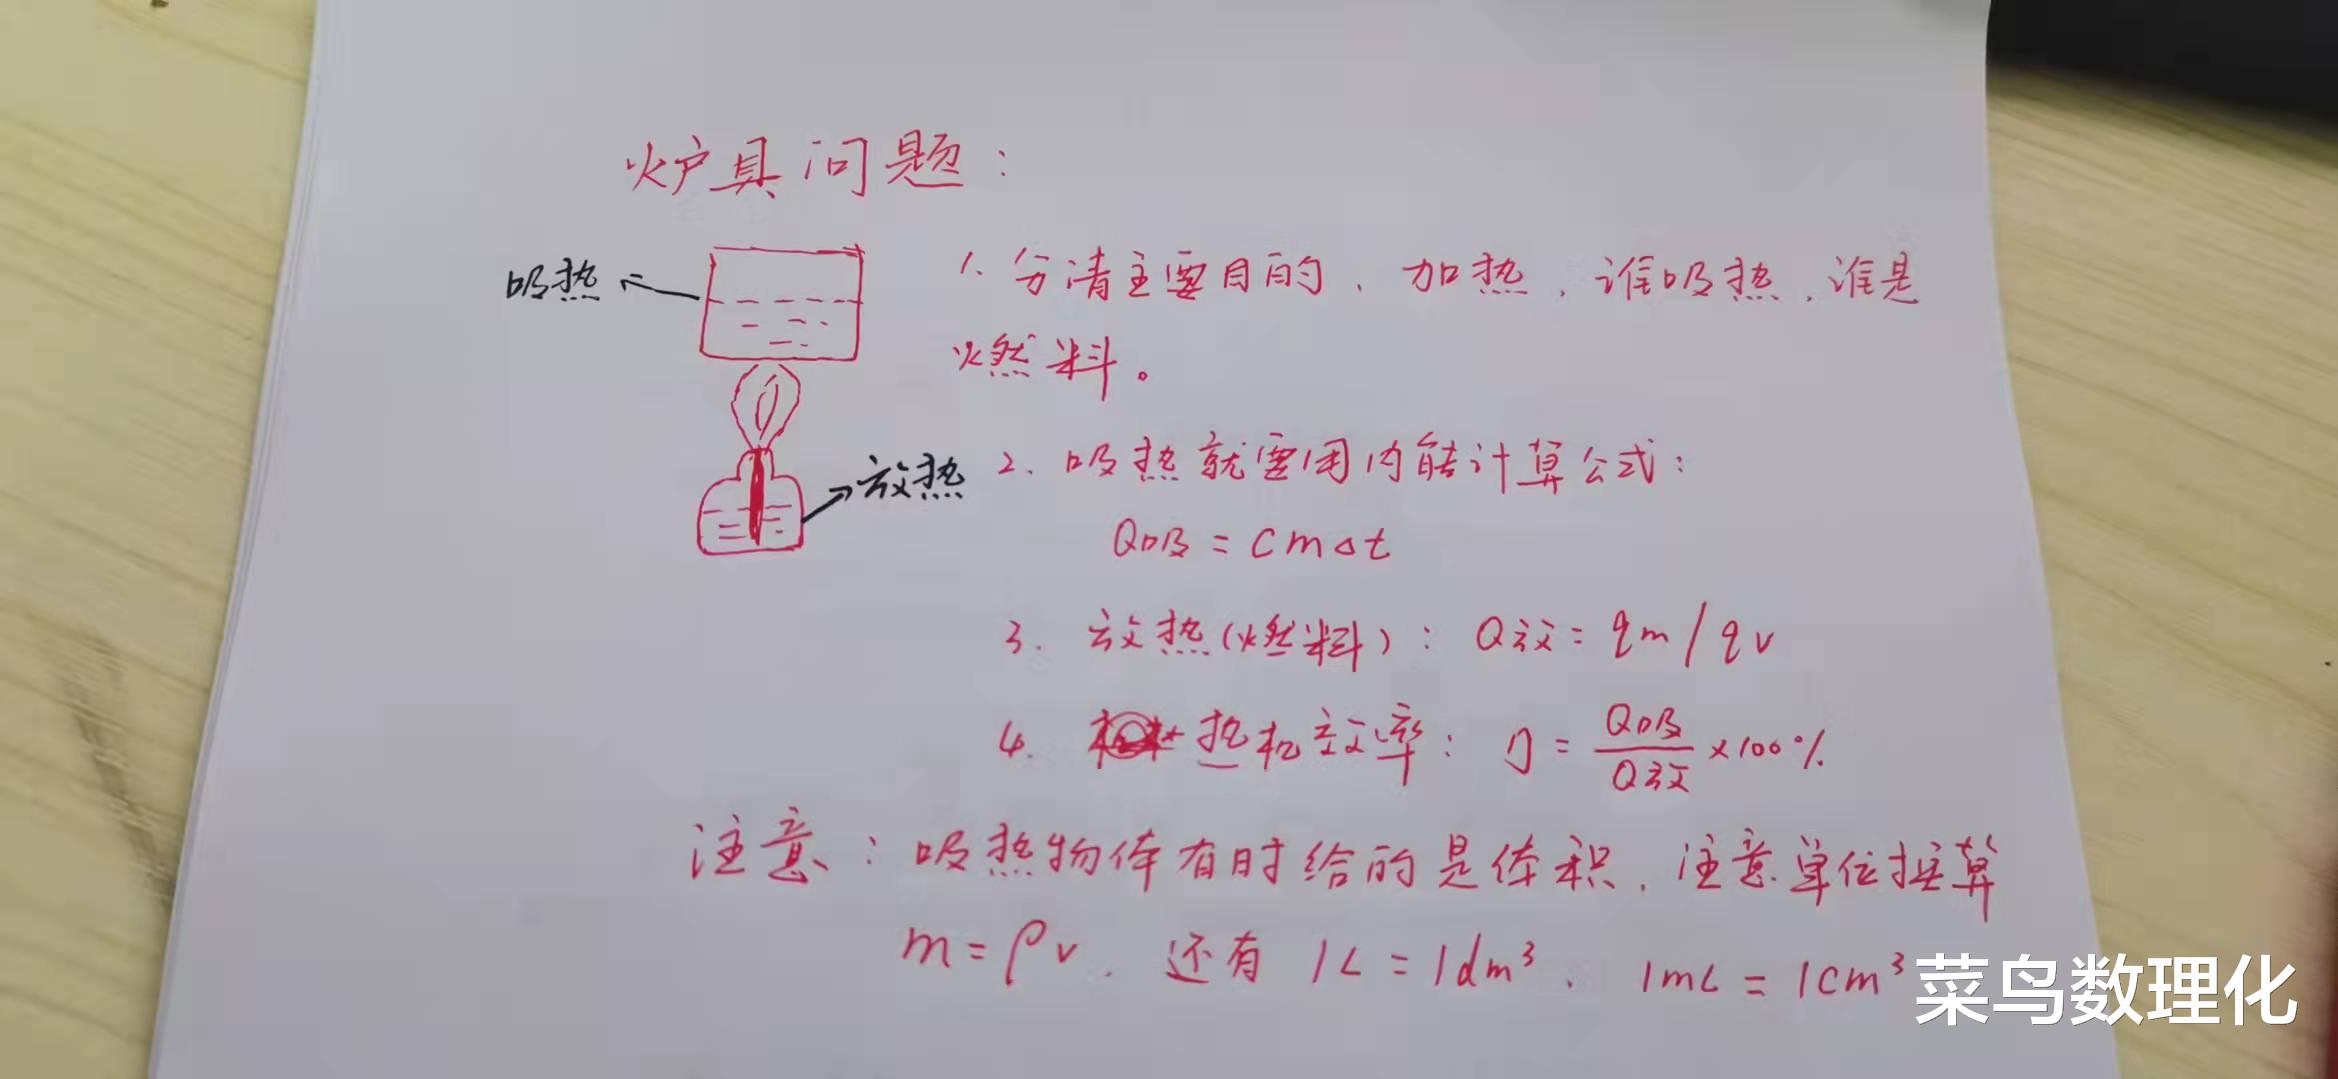 炉具问题：
吸热
1. 分清主要目的，加热，谁吸热，谁是
燃料。
放热
2. 吸热就要用内能计算公式：
Q吸 = cm△t
3. 放热(燃料)：Q放 = qm/qv
4. 热机效率：η = Q吸/Q放 ×100%
注意：吸热物体有时给的是体积，注意单位换算
m = ρv，还有 1L = 1dm³，1mL = 1cm³
菜鸟数理化